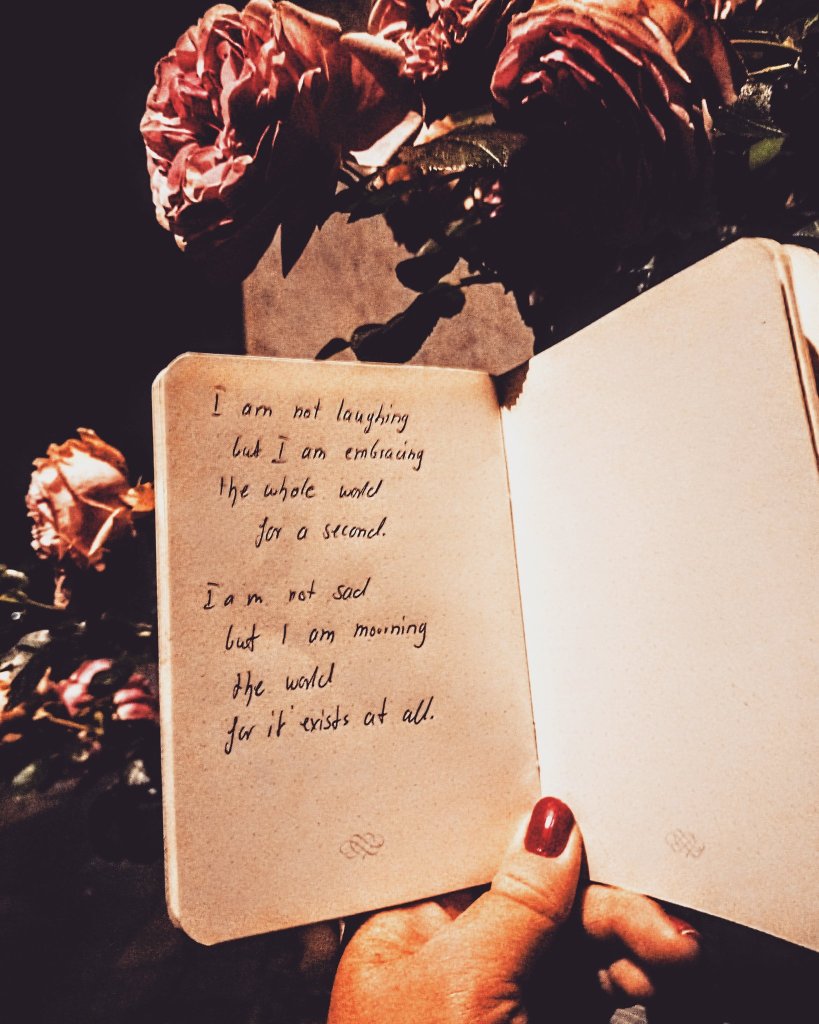 I am not laughing
but I am embracing
the whole world
for a second.
I am not sad
but I am mourning
the world
for it exists at all.